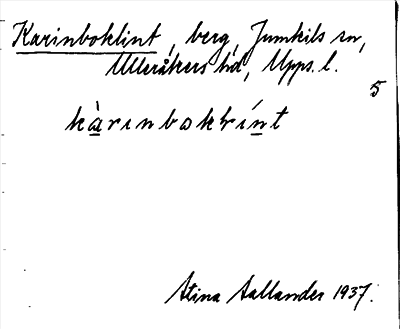 Karinboklint, berg, Jumkils sn,
Ulleråkers hd, Upps. l.
5
kàrɪnbokɽínt
Stina Sallander 1937.